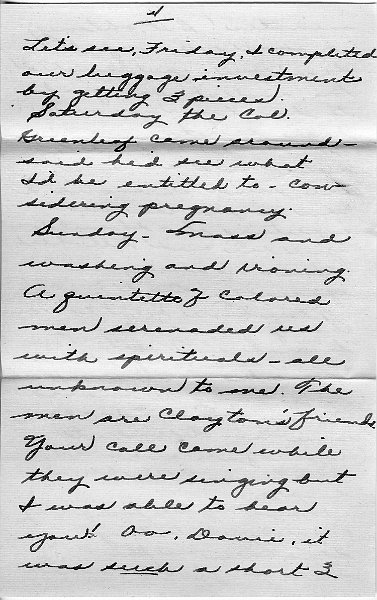 Let's see, Friday, I completed
our luggage investment
by getting 3 pieces.
Saturday the Col.
Greenleaf came around -
said he'd see what
I'd be entitled to - con-
sidering pregnancy.
Sunday - mass and
washing and ironing.
A quintette of colored
men serenaded us
with spirituals - all
unknown to me. The
men are Clayton's friends
Your call came while
they were singing but
I was able to hear
you! Oo, Davie, it
was such a short 3